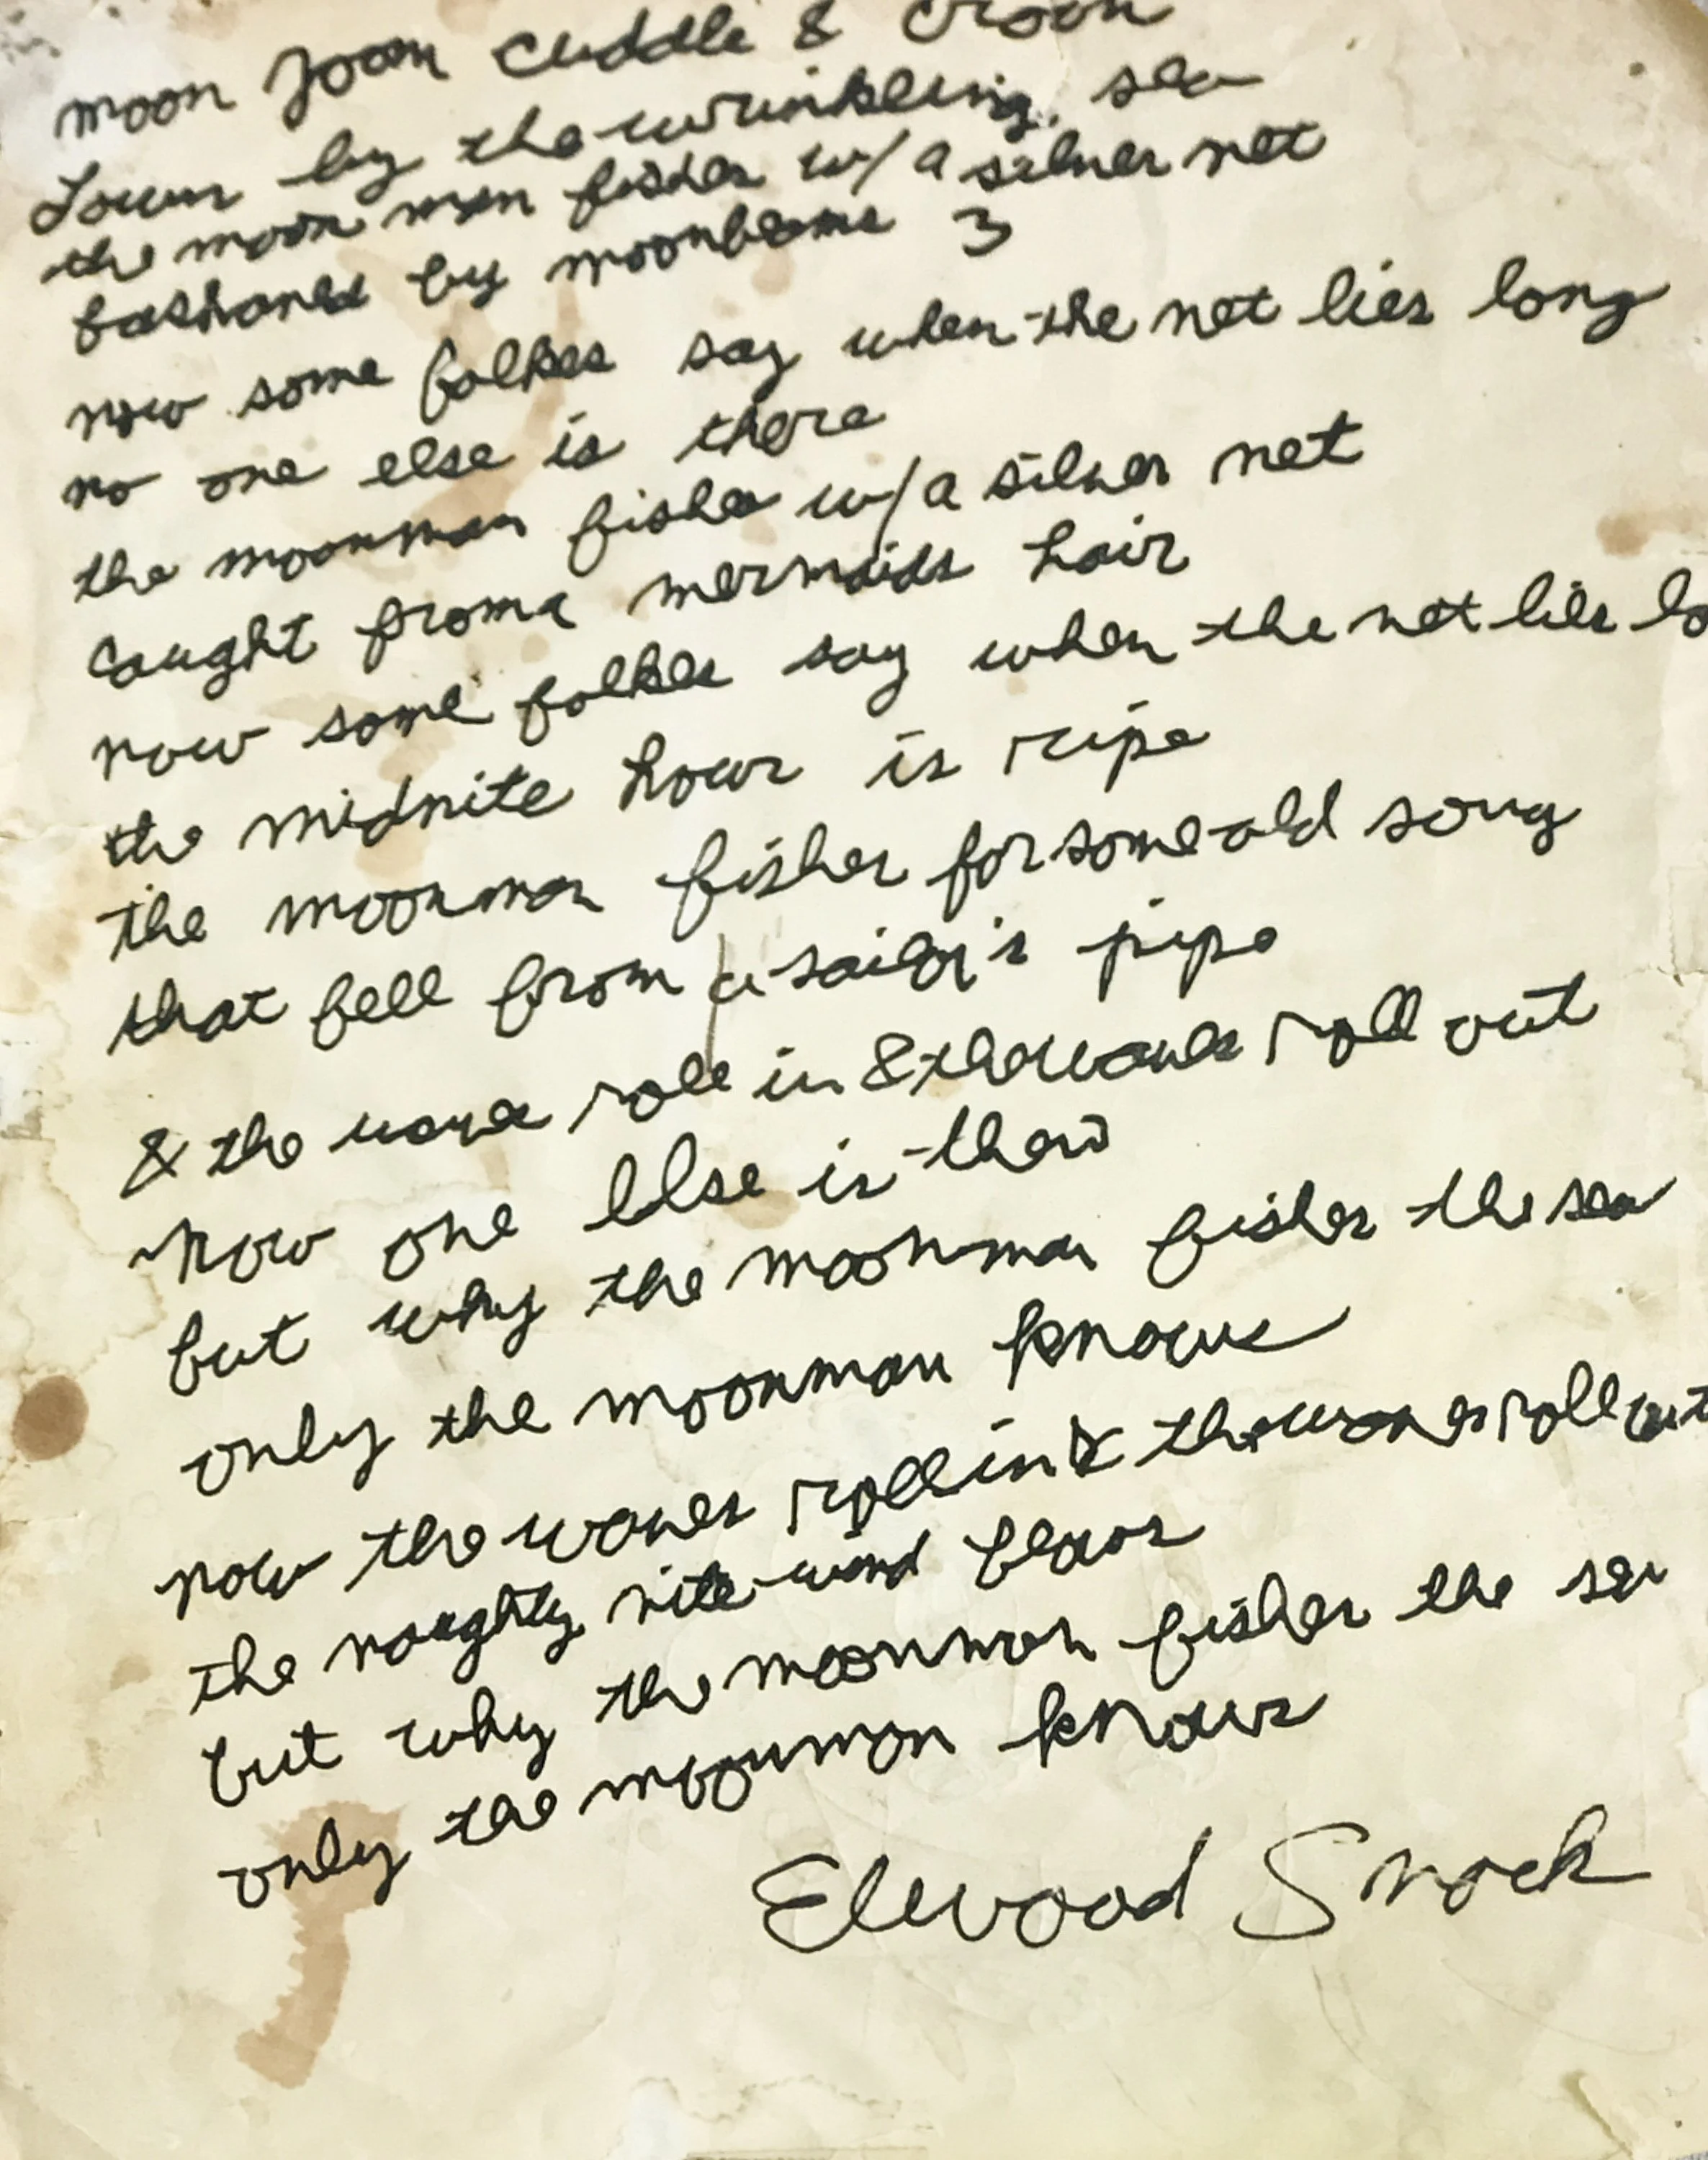 moon Joon Cuddle & Croon
Down by the wrinkling sea
the moon man fishes w/ a silver net
fashoned by moonbeams 3
now some folkes say when the net lies long
no one else is there
the moonman fishes w/ a silver net
Caught from a mermaids hair
now some folkes say when the net lies lo
the midnite hour is ripe
the moonman fishes for some old song
that fell from a sailor's pipe
& the waves role in & the waves roll out
Now one else is their
but why the moonman fishes the sea
only the moonman knows
now the waves roll in & the waves roll out
the naughty nite wind blows
but why the moonman fishes the sea
only the moonman knows
Elwood Snock